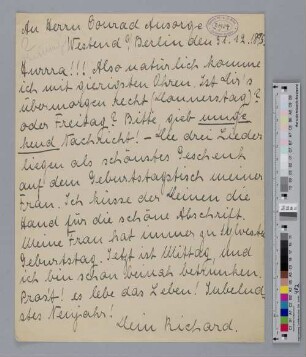 An Herrn Conrad Ansorge
Westend b/ Berlin den 31. 12. 1895
Hurrra!!! Also natürlich komme
ich mit gierigsten Ohren. Ist Dir's
übermorgen recht (Donnerstag)?
oder Freitag? Bitte, gieb umge
hend Nachricht! – Die drei Lieder
liegen als schönstes Geschenk
auf dem Geburtstagstisch meiner
Frau. Ich küsse der Deinen die
Hand für die schöne Abschrift.
Meine Frau hat immer zu Sylvester
Geburtstag. Jetzt ist Mittag, und
ich bin schon wenach betrunken.
Prosit! es lebe das Leben! Jubelnd
stes Neujahr!
Dein Richard.